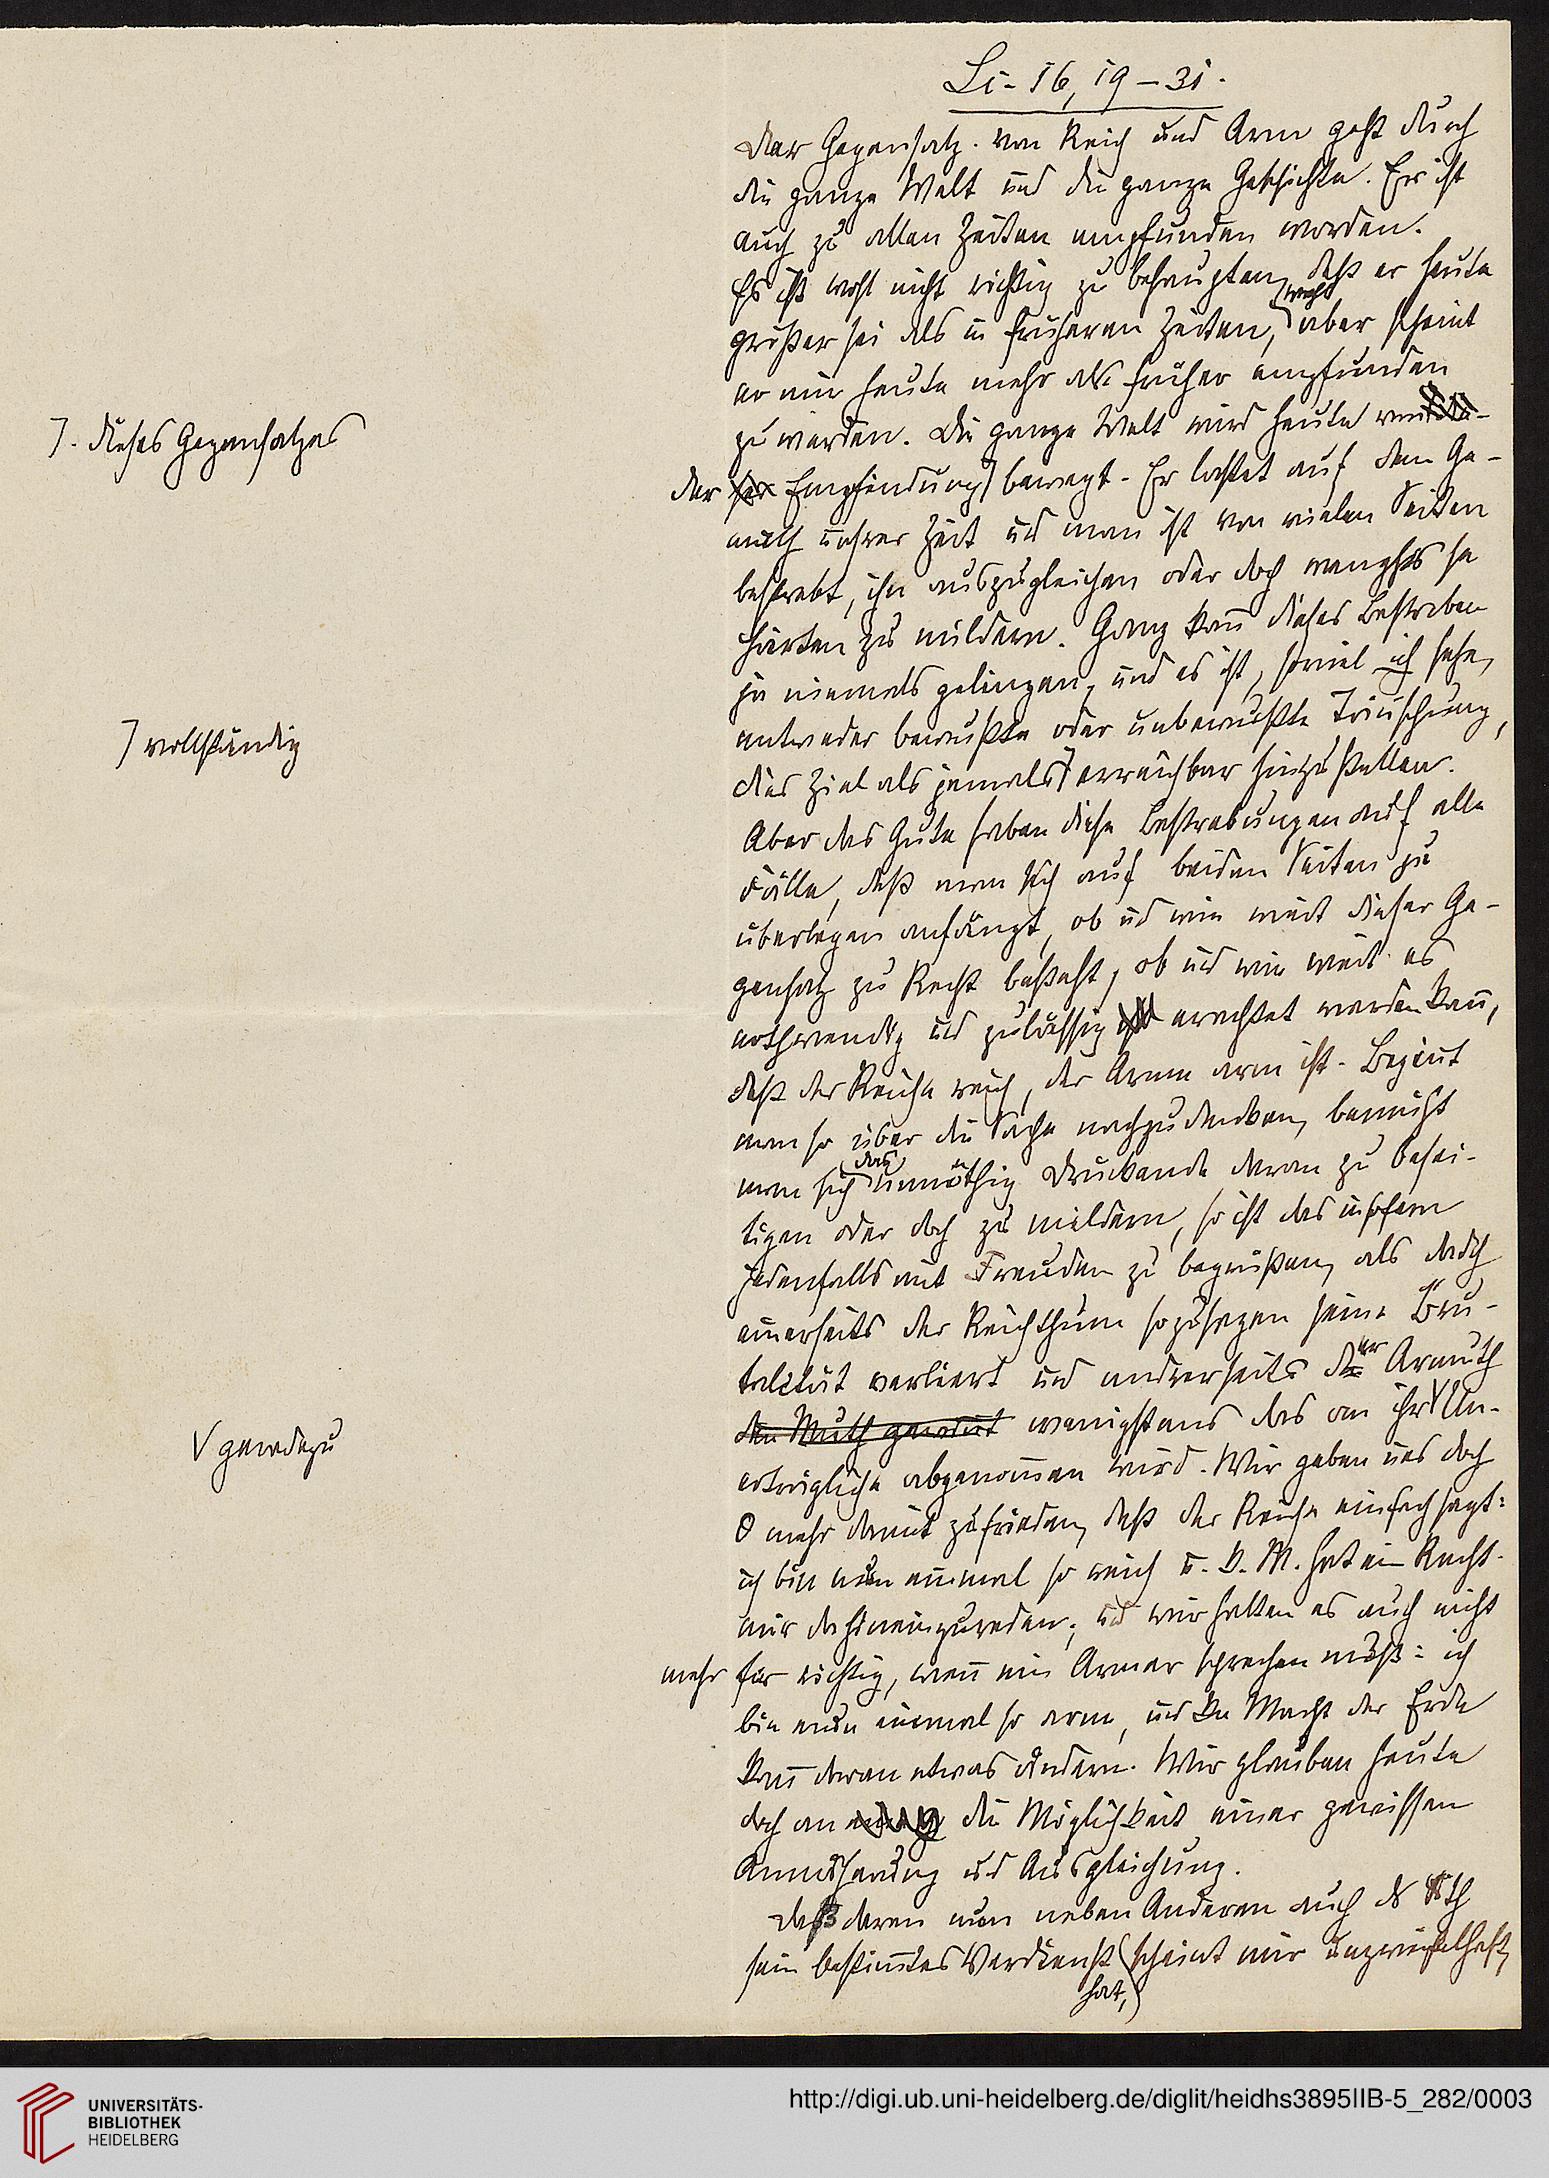 Lc. 16, 19–31.
Der Gegensatz von Reich und Arm geht durch
die ganze Welt und die ganze Geschichte. Er ist
auch zu allen Zeiten empfunden worden.
Es ist wohl nicht richtig zu behaupten, daß er heute
größer sei als in früheren Zeiten, wohl aber scheint
er mir heute mehr als früher empfunden
zu werden. Die ganze Welt wird heute von
der Empfindung ⁊ bewegt. Er lastet auf dem Ge-
müth unsrer Zeit und man ist von vielen Seiten
bestrebt, ihn auszugleichen oder doch wenigstens se
Härten zu mildern. Ganz kann dieses Bestreben
ja niemals gelingen, und es ist, soviel ich sehe,
entweder bewußte oder unbewußte Täuschung,
dies Ziel als jemals ⁊ erreichbar hinzustellen.
Aber das Gute haben diese Bestrebungen auf alle
Fälle, daß man sich auf beiden Seiten zu
überlegen anfängt, ob und wie weit dieser Ge-
gensatz zu Recht besteht, ob und wie weit es
nothwendig und zulässig erachtet werden kann,
daß der Reiche reich, der Arme arm ist. Beginnt
man so über die Sache nachzudenken, bemüht
man sich das unnöthig Drückende daran zu besei-
tigen oder doch zu mildern, so ist das insofern
jedenfalls mit Freuden zu begrüßen, als dadch
einerseits der Reichthum sozusagen seine Bru-
talität verliert und andrerseits der Armuth
den Muth geraubt wenigstens das an ihr √ Un-
erträgliche abgenommen wird. Wir geben uns doch
0 mehr damit zufrieden, daß der Reiche einfach sagt:
ich bin nun einmal so reich u. k. M. hat ein Recht
mir da hineinzureden; und wir halten es auch nicht
mehr für richtig, wenn ein Armer sprechen muß: ich
bin nun einmal so arm, und kne Macht der Erde
kann daran etwas ändern. Wir glauben heute
doch an die Möglichkeit einer gewissen
Annäherung und Ausgleichung.
Daß daran nun neben Anderen auch
sein bestimmtes Verdienst hat, scheint mir unzweifelhaft,
⁊. dieses Gegensatzes
⁊ vollständig
√ geradezu
UNIVERSITÄTS-
BIBLIOTHEK
HEIDELBERG
http://digi.ub.uni-heidelberg.de/diglit/heidhs3895IIB-5_282/0003